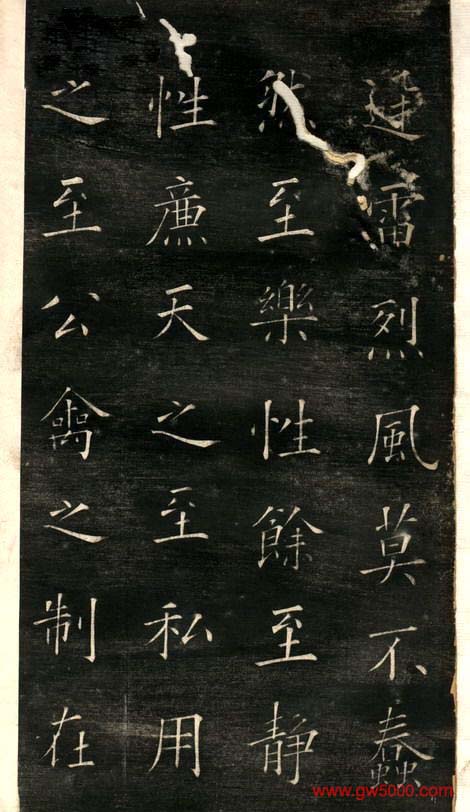 迅雷烈風莫不蠢
然至樂性餘至靜
性廉天之至私用
之至公禽之制在
www.gw5000.com